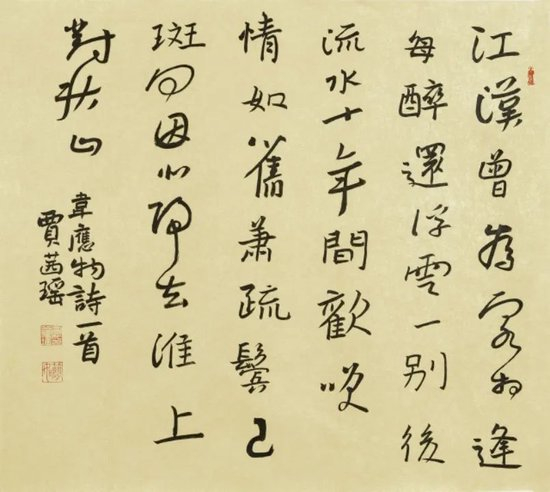 江漢曾為客相逢
每醉還浮雲一別後
流水十年間歡咲
情如舊蕭疏鬢已
斑何因北歸去淮上
對秋山
韋應物詩一首
賈茜瑤